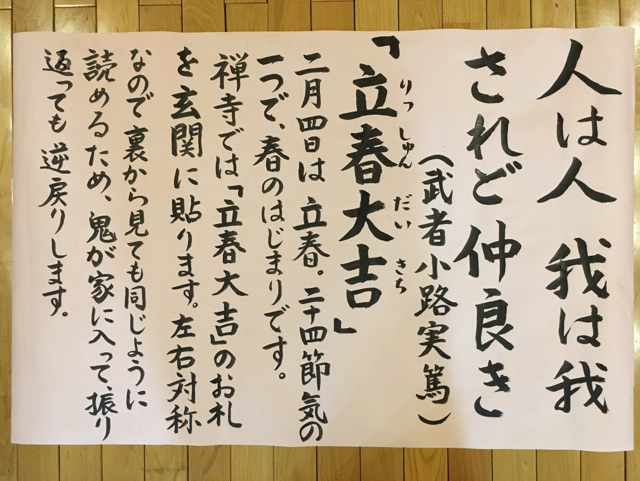 人は人 我は我
されど 仲良き
(武者小路実篤)
「立春大吉」
りっしゅん だいきち
二月四日は 立春。二十四節気の
一つで、春のはじまりです。
禅寺では「立春大吉」のお札
を玄関に貼ります。左右対称
なので裏から見ても同じように
読めるため、鬼が家に入って、振り
返っても逆戻りします。